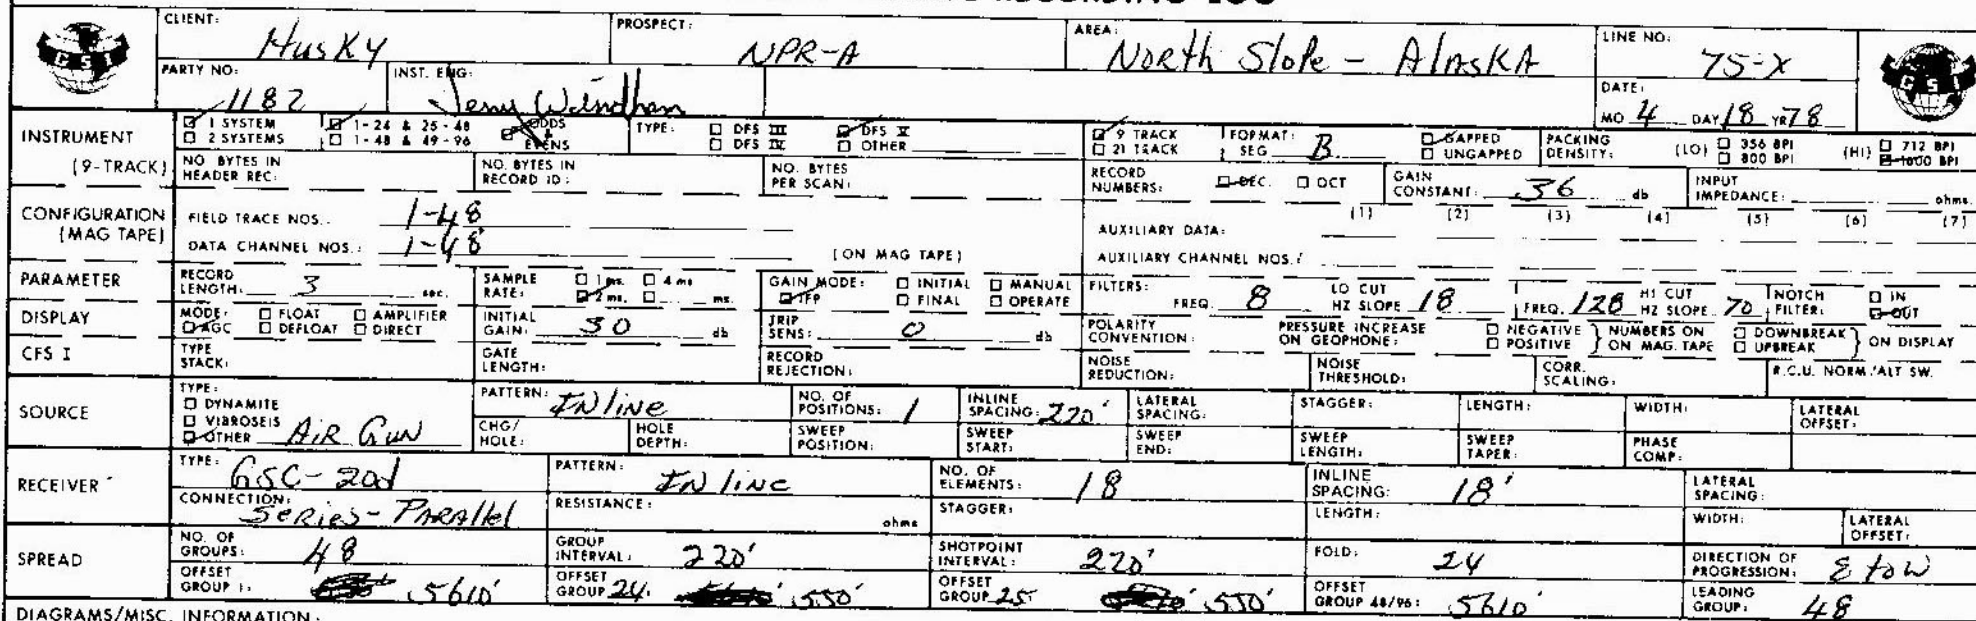 RECORDING LOG
CLIENT: Husky PROSPECT: NPR-A AREA: North Slope - Alaska LINE NO: 75-X
GSI GSI
PARTY NO: 1182 INST. ENG: Jerry Windham DATE: MO 4 DAY 18 YR 78
INSTRUMENT (9-TRACK) 1 SYSTEM 1-24 & 25-48 ODDS + EVENS TYPE: DFS III DFS V 9 TRACK FORMAT: SEG B GAPPED PACKING DENSITY: (LO) 356 BPI (HI) 712 BPI
2 SYSTEMS 1-48 & 49-96 DFS IV OTHER 21 TRACK UNGAPPED 800 BPI 1600 BPI
NO BYTES IN HEADER REC: NO. BYTES IN RECORD ID: NO. BYTES PER SCAN: RECORD NUMBERS: DEC. OCT GAIN CONSTANT: 36 db INPUT IMPEDANCE: ohms.
CONFIGURATION (MAG TAPE) FIELD TRACE NOS.: 1-48 (1) (2) (3) (4) (5) (6) (7)
AUXILIARY DATA:
DATA CHANNEL NOS.: 1-48 (ON MAG TAPE) AUXILIARY CHANNEL NOS.:
PARAMETER RECORD LENGTH: 3 sec. SAMPLE RATE: 1 ms. 4 ms 2 ms. ms. GAIN MODE: INITIAL MANUAL IFP FINAL OPERATE FILTERS: FREQ. 8 LO CUT HZ SLOPE 18 FREQ. 128 HI CUT HZ SLOPE 70 NOTCH FILTER: IN OUT
DISPLAY MODE: FLOAT AMPLIFIER AGC DEFLOAT DIRECT INITIAL GAIN: 30 db TRIP SENS: 0 db POLARITY CONVENTION: PRESSURE INCREASE ON GEOPHONE: NEGATIVE POSITIVE } NUMBERS ON MAG. TAPE DOWNBREAK UPBREAK } ON DISPLAY
CFS I TYPE STACK: GATE LENGTH: RECORD REJECTION: NOISE REDUCTION: NOISE THRESHOLD: CORR. SCALING: R.C.U. NORM./ALT SW.
SOURCE TYPE: DYNAMITE VIBROSEIS OTHER Air Gun PATTERN: Inline NO. OF POSITIONS: 1 INLINE SPACING: 220' LATERAL SPACING: STAGGER: LENGTH: WIDTH: LATERAL OFFSET:
CHG/HOLE: HOLE DEPTH: SWEEP POSITION: SWEEP START: SWEEP END: SWEEP LENGTH: SWEEP TAPER: PHASE COMP:
RECEIVER TYPE: GSC-20d PATTERN: Inline NO. OF ELEMENTS: 18 INLINE SPACING: 18' LATERAL SPACING:
CONNECTION: Series-Parallel RESISTANCE: ohms STAGGER: LENGTH: WIDTH: LATERAL OFFSET:
SPREAD NO. OF GROUPS: 48 GROUP INTERVAL: 220' SHOTPOINT INTERVAL: 220' FOLD: 24 DIRECTION OF PROGRESSION: E to W
OFFSET GROUP 1: 5610' OFFSET GROUP 24: 550' OFFSET GROUP 25 550' OFFSET GROUP 48/96: 5610' LEADING GROUP: 48
DIAGRAMS/MISC. INFORMATION: